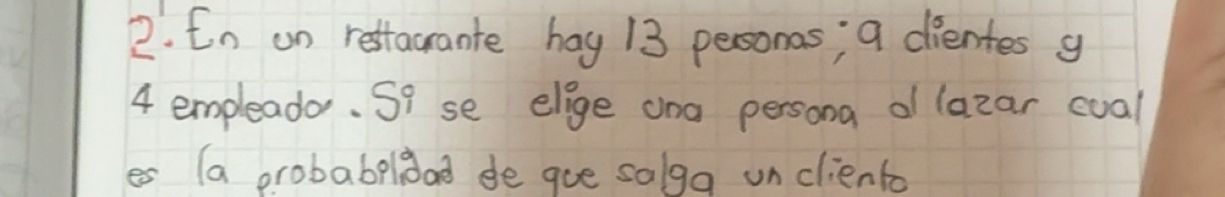 2. En un restaurante hay 13 personas; 9 clientes y
4 empleado. Si se elige una persona al lazar cual
es la probabilidad de que salga un cliento